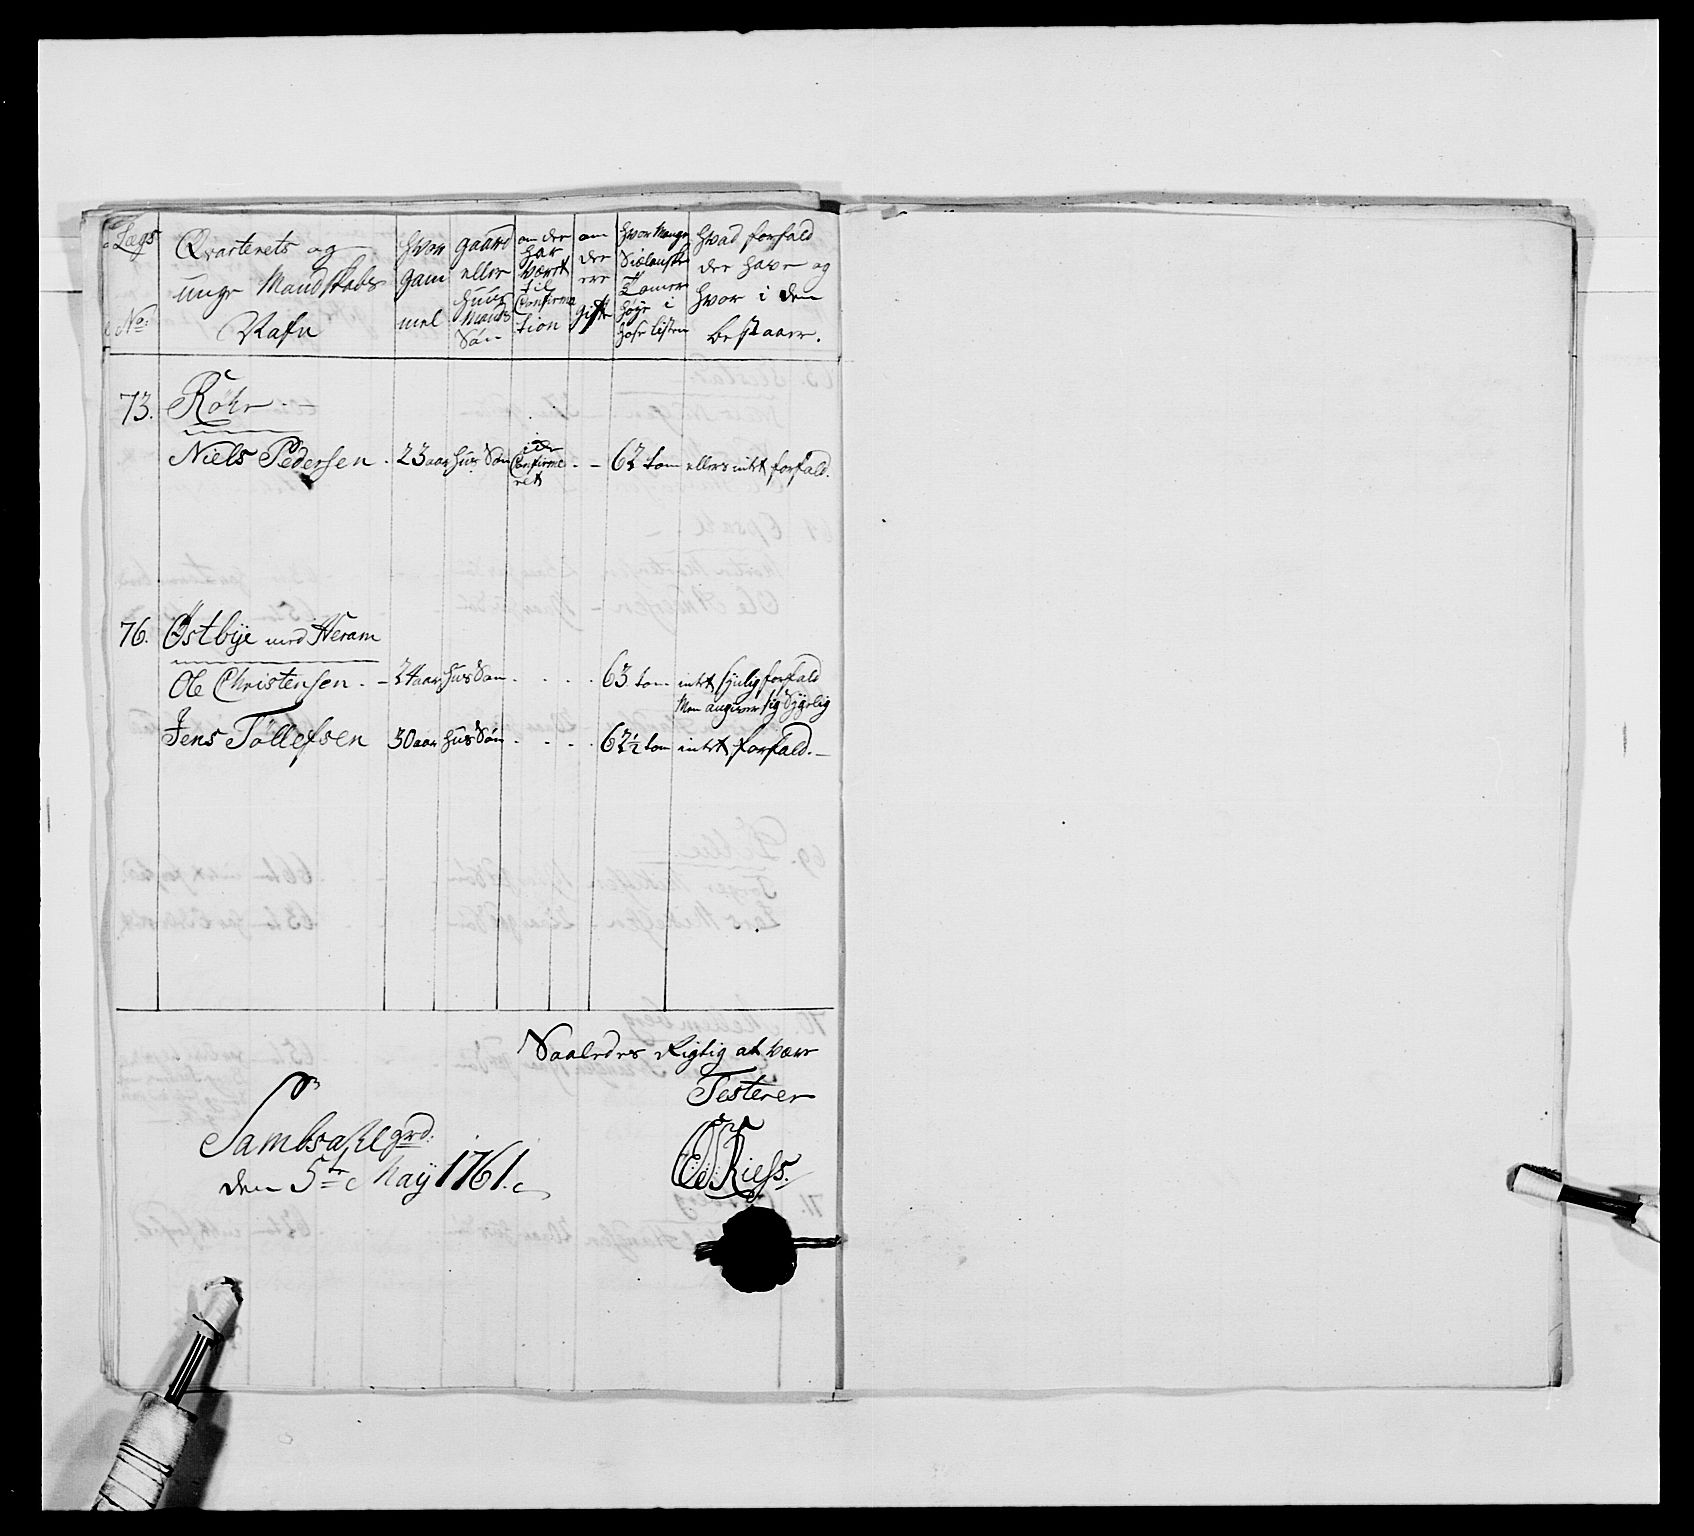 Lægs No:
Qvarterets og unge Mandskabs Nafn
hvor gam mel
gaard eller Huus Mands Søn
om der har Været til Confirma tion
om der ere gifte
hvor Mange Siælanske Tomer høye i hose listen
hvad forfald der have og hvor i dem bestaaer.
73. Røhr
Niels Pedersen . 23 aar Hus Søn Confirme ret - 62 tom ellers intet forfald.
76. Østbye med Heram
Ole Christensen . - 24 aar Hus Søn . . . . 63 tom intet Synlig forfald
Men angiver sig Sygelig
Jens Tollefsen 30 aar Hus Søn . . . . 62½ tom intet forfald. -
Saaledes Rigtig at være
Testerer
Sambsahl grd:
den 5te May 1761.